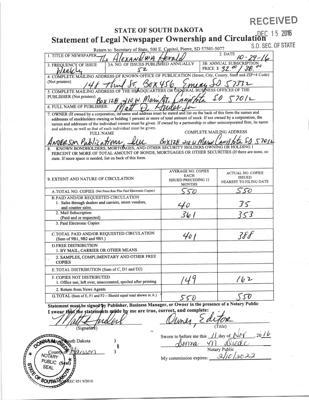 RECEIVED
DEC 15 2016
S.D. SEC. OF STATE
STATE OF SOUTH DAKOTA
Statement of Legal Newspaper Ownership and Circulation
Return to: Secretary of State, 500 E. Capitol, Pierre, SD 57501-5077
1. TITLE OF NEWSPAPER The Alexandria Herald
2. DATE 10-29-16
3. FREQUENCY OF ISSUE Weekly
3A. NO. OF ISSUES PUBLISHED ANNUALLY 52
3B. ANNUAL SUBSCRIPTION PRICE $
4. COMPLETE MAILING ADDRESS OF KNOWN OFFICE OF PUBLICATION (Street, City, County, Staff and ZIP+4 Code)
(Not printers)
Box 456
5. COMPLETE MAILING ADDRESS OF THE HEADQUARTERS OF GENERAL BUSINESS OFFICES OF THE
PUBLISHER (Not printer)
SD 57012
6. FULL NAME OF PUBLISHER: Matt
7. OWNER (If owned by a corporation, its name and address must be stated and list on the back of this form the names and
addresses of stockholders owning or holding 1 percent or more of total amount of stock. If not owned by a corporation, the
names and addresses of the individual owners must be given. If owned by a partnership or other unincorporated firm, its name
and address, as well as that of each individual must be given.
FULL NAME
COMPLETE MAILING ADDRESS
Anderson Publications Inc
8. KNOWN BONDHOLDERS, MORTGAGES, AND OTHER SECURITY HOLDERS OWNING OR HOLDING 1
PERCENT OR MORE OF TOTAL AMOUNT OF BONDS, MORTGAGES OR OTHER SECURITIES (If there are none, so
state. If more space is needed, list on back of this form.
9. EXTENT AND NATURE OF CIRCULATION
AVERAGE NO. COPIES EACH ISSUED PRECEDING 12 MONTHS
ACTUAL NO. COPIES ISSUED NEAREST TO FILING DATE
A. TOTAL NO. COPIES (Net Press Run Plus Paid Electronic Copies) 550 550
B. PAID AND/OR REQUESTED CIRCULATION
1. Sales through dealers and carriers, street vendors,
and counter sales. 40 35
2. Mail Subscription
(Paid and or requested) 361 353
3. Paid Electronic Copies
C. TOTAL PAID AND/OR REQUESTED CIRCULATION
(Sum of 9B1, 9B2 and 9B3.) 401 388
D. FREE DISTRIBUTION
1. BY MAIL, CARRIER OR OTHER MEANS
2. SAMPLES, COMPLIMENTARY AND OTHER FREE
COPIES
E. TOTAL DISTRIBUTION (Sum of C, D1 and D2)
F. COPIES NOT DISTRIBUTED
1. Office use, left over, unaccounted, spoiled after printing 149 162
2. Return from News Agents
G. TOTAL (Sum of E, F1 and F2 - Should equal total shown in A.) 550 550
Statement must be signed by Publisher, Business Manager, or Owner in the presence of a Notary Public
I swear that the statements made by me are true, correct, and complete:
Owner, Editor
(Signature)
(Title)
South Dakota )
County Hanson )
Sworn to before me this 11 day of Nov 2016
Donna M
Notary Public
My commission expires:
NOTARY
PUBLIC
SEAL
SOUTH DAKOTA